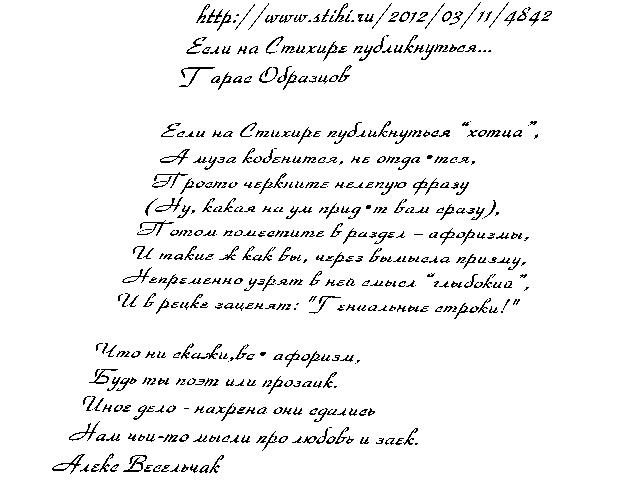 http://www.stihi.ru/2012/03/11/4842
Если на Стихире публикнуться...
Тарас Образцов
Если на Стихире публикнуться "хотца",
А муза кобенится, не отда•тся,
Просто черкните нелепую фразу
(Ну, какая на ум прид•т вам сразу),
Потом поместите в раздел – афоризмы,
И такие ж как вы, через вымысла призму,
Непременно узрят в ней смысл "глыбокий",
И в рецке заценят: "Гениальные строки!"
Что ни скажи,вс• афоризм,
Будь ты поэт или прозаик.
Иное дело - нахрена они сдались
Нам чьи-то мысли про любовь и заек.
Алекс Весельчак